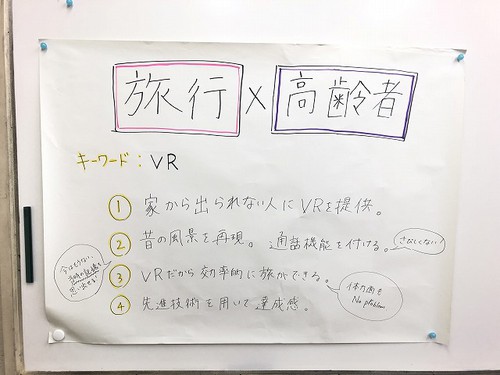 旅行 × 高齢者
キーワード：VR
① 家から出られない人にVRを提供。
② 昔の風景を再現。 通話機能を付ける。
さみしくない！
③ VRだから効率的に旅ができる。
今はもうない、
当時の記憶を
思い出せる！
体力面も
No problem
④ 先進技術を用いて達成感。